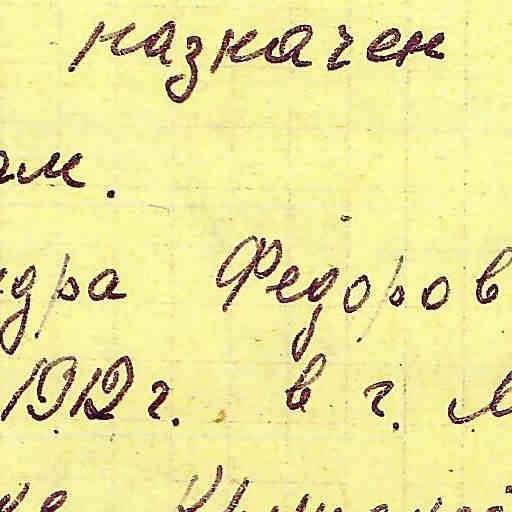 назначен
ам.
ндра Федоров
1912 г. в г. М